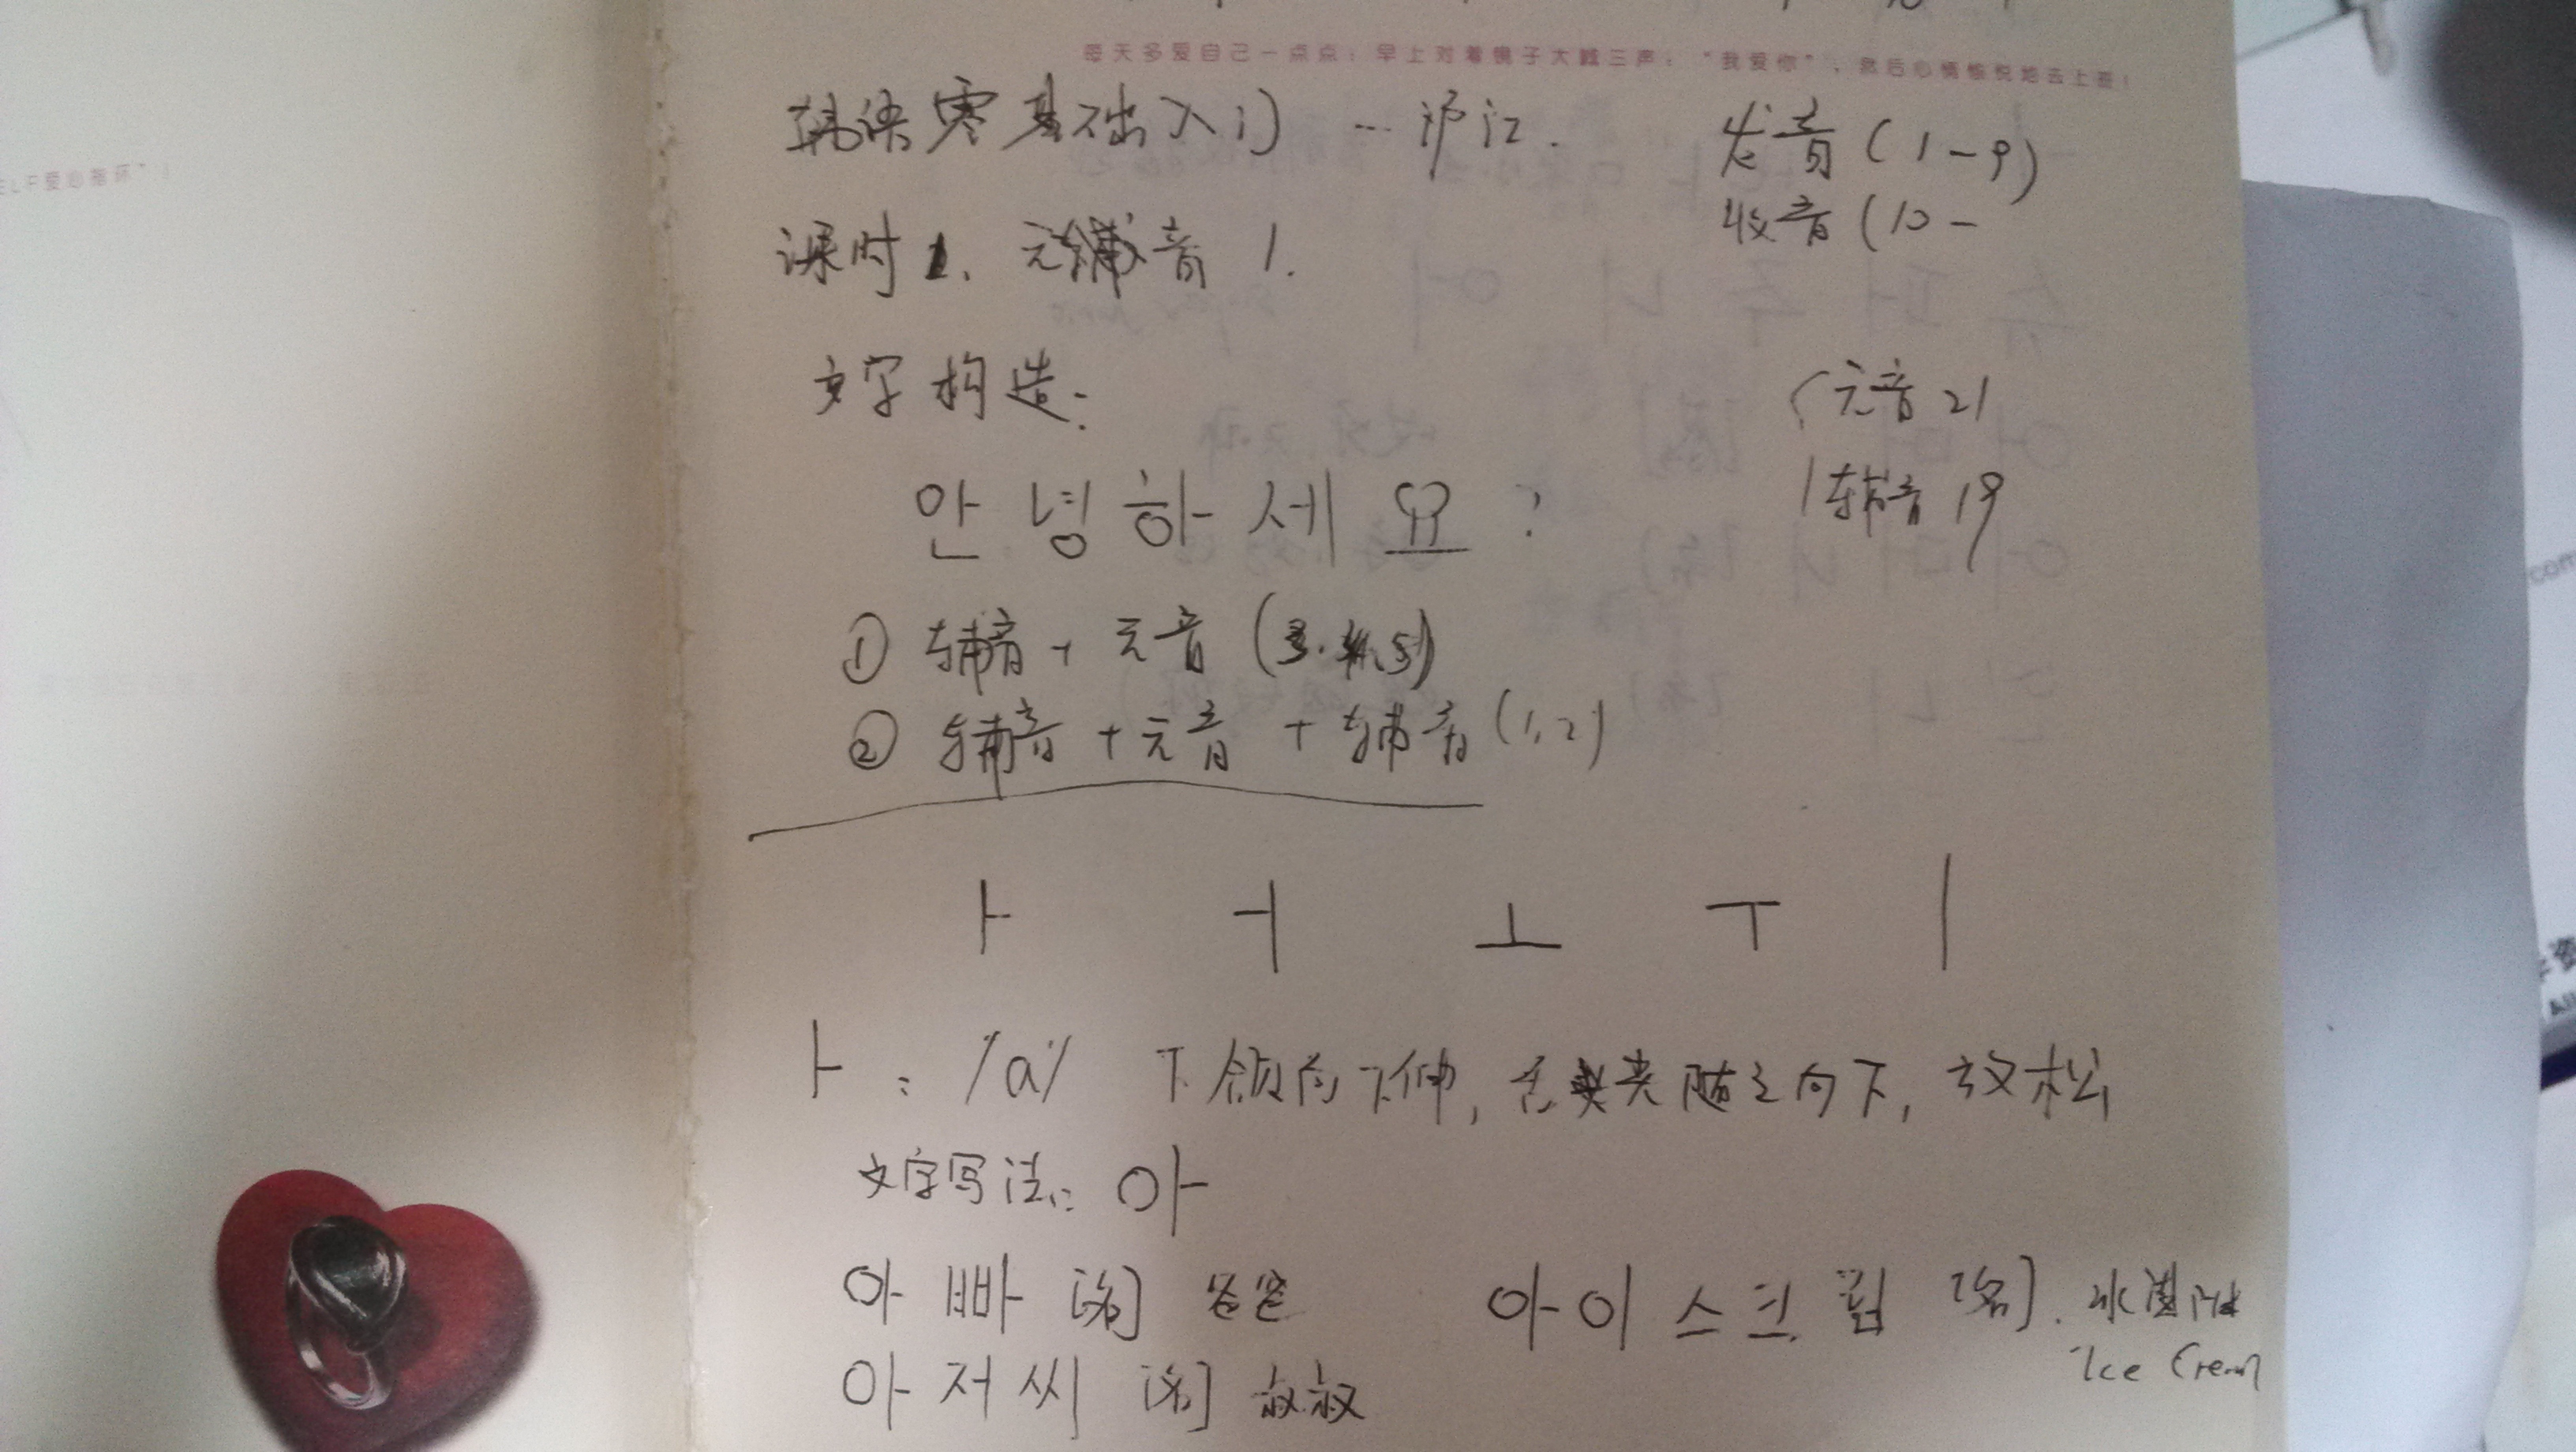 每天多爱自己一点点：早上对着镜子大喊三声："我爱你"，然后心情愉悦地去上班！
韩语零基础入门 … 沪江.
发音（1-9）
收音（10-
课时1. 元辅音 1.
文字构造:
元音 21
辅音 19
안녕하세요?
① 辅音 + 元音 (3.4.5)
② 辅音 + 元音 + 辅音 (1,2)
ㅏ ㅓ ㅗ ㅜ ㅣ
ㅏ: /a/ 下颌向下伸, 舌尖随之向下, 放松
文字写法: 아
아빠 [名] 爸爸
아이스크림 [名]. 冰淇淋
Ice Cream
아저씨 [名] 叔叔